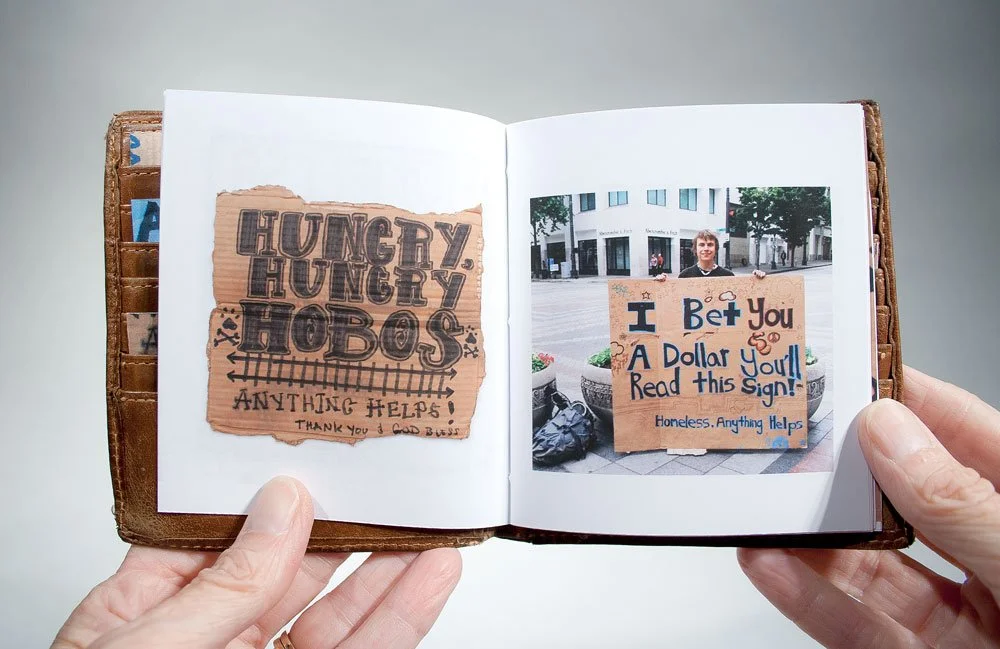 HUNGRY,
HUNGRY
HOBOS
ANYTHING HELPS!
THANK YOU & GOD BLESS
Abercrombie & Fitch
I Bet You
A Dollar You'll
Read this Sign!
Homeless. Anything Helps